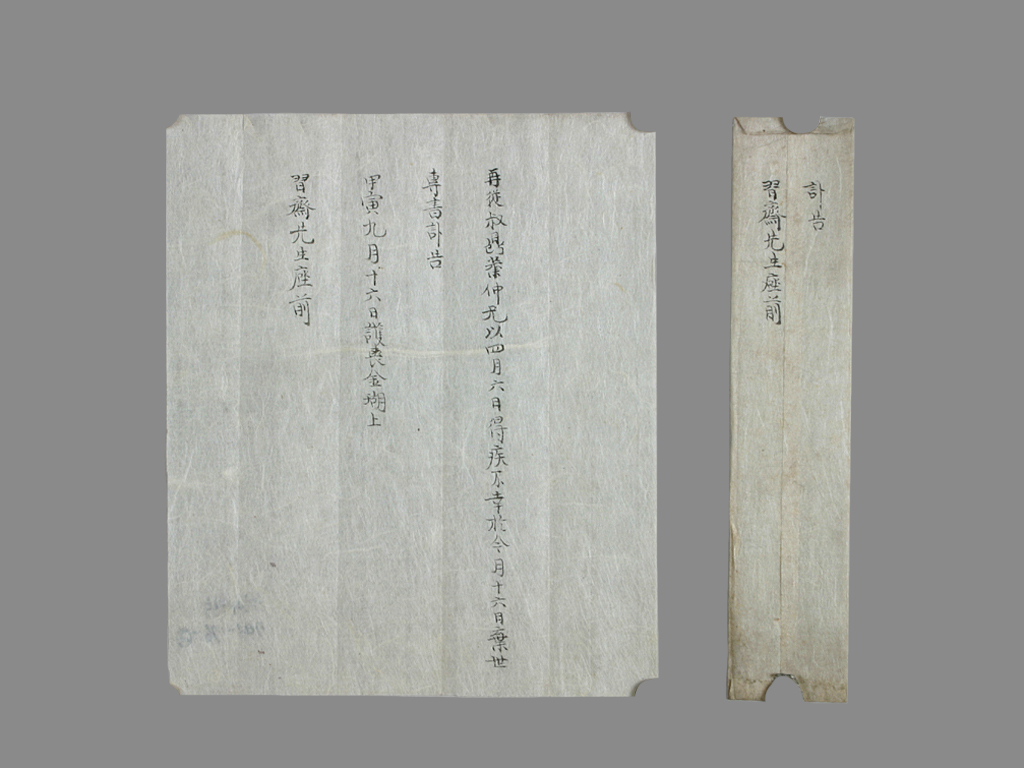 再從叔鼎榮仲兄以四月六日得疾不幸於今月十六日棄世
專書訃告
甲寅九月十六日護喪金瑚上
習齋先生座前
訃告
習齋先生座前